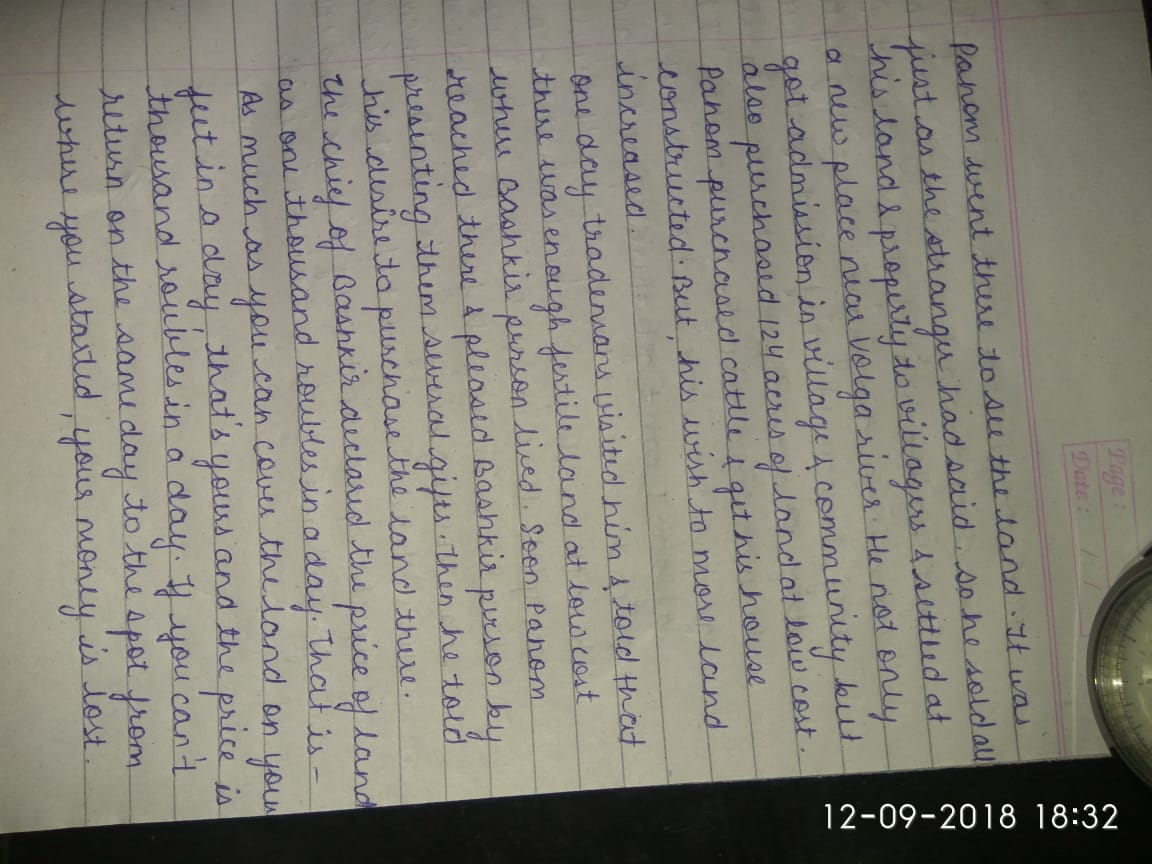 Page :
Date : / /
12-09-2018 18:32
Pahom went there to see the land. It was
just as the stranger had said. So he sold all
his land & property to villagers & settled at
a new place near Volga river. He not only
got admission in village & community but
also purchased 124 acres of land at low cost.
Pahom purchased cattle & get his house
constructed. But, his wish to more land
increased.
One day trademans visited him & told that
there was enough fertile land at low cost
where Bashkir person lived. Soon Pahom
reached there & pleased Bashkir person by
presenting them several gifts. Then he told
his desire to purchase the land there.
The chief of Bashkir declared the price of land
as one thousand roubles in a day. That is –
As much as you can cover the land on your
feet in a day, that's yours and the price is
thousand roubles in a day. If you can't
return on the same day to the spot from
where you started, your money is lost.